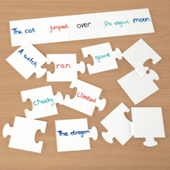 The cat jumped over the elegant moon.
A witch
ran
giant
cheeky
climbed
The dragon